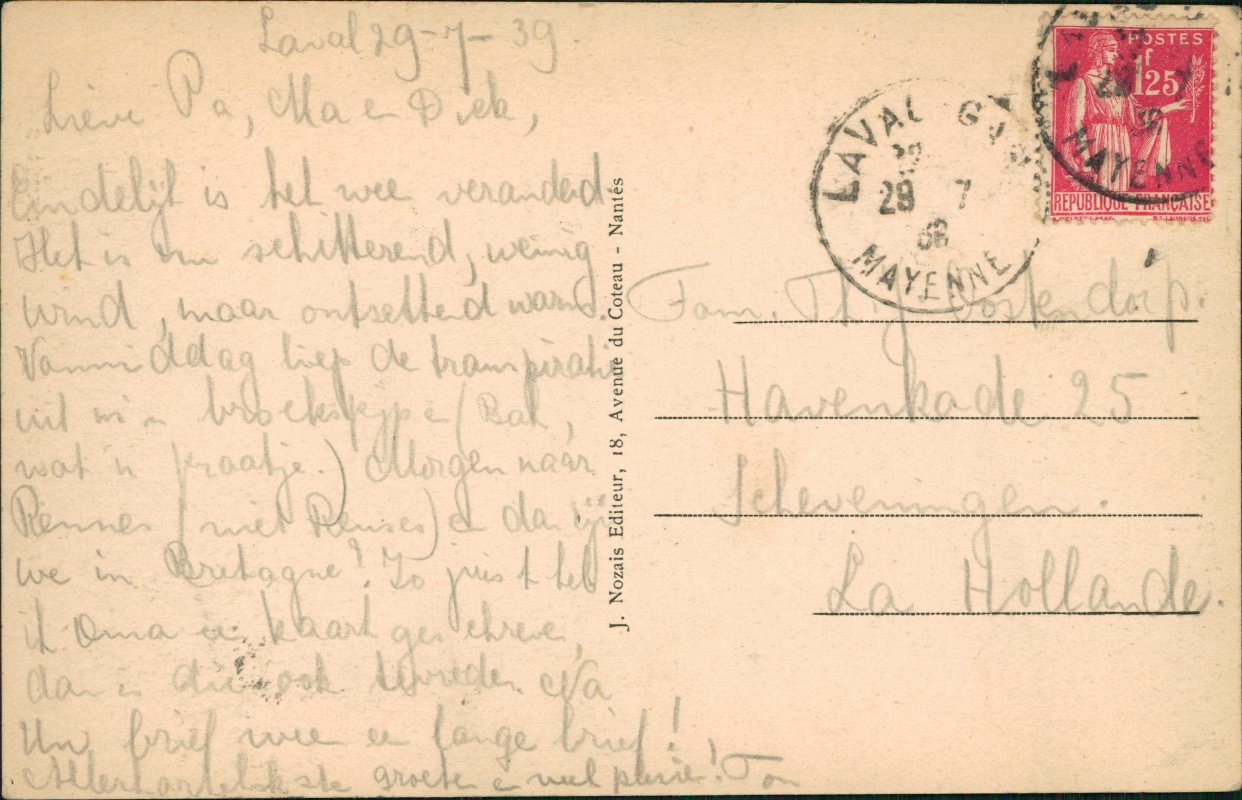 Laval 29-7-39.
Lieve Pa, Ma en Dick,
Eindelijk is het weer veranderd
Het is nu schitterend, weinig
wind, maar ontzettend warm.
Vanmiddag liep de transpiratie
uit m'n broekspijpen (Bah,
wat 'n praatje.) Morgen naar
Rennes (niet Reuses) en dan zijn
we in Bretagne! Zo juist heb
ik Oma een kaart geschreven,
dan is die ook tevreden. Na
Uw brief weer een lange brief!
Allerhartelijkste groeten en veel plezier! Ton
J. Nozais Editeur, 18, Avenue du Coteau - Nantes
LAVAL GARE
29 7
MAYENNE
POSTES
1f 25
MAYENNE
REPUBLIQUE FRANÇAISE
Fam. Th. J. Oostendorp.
Havenkade 25
Scheveningen.
La Hollande.